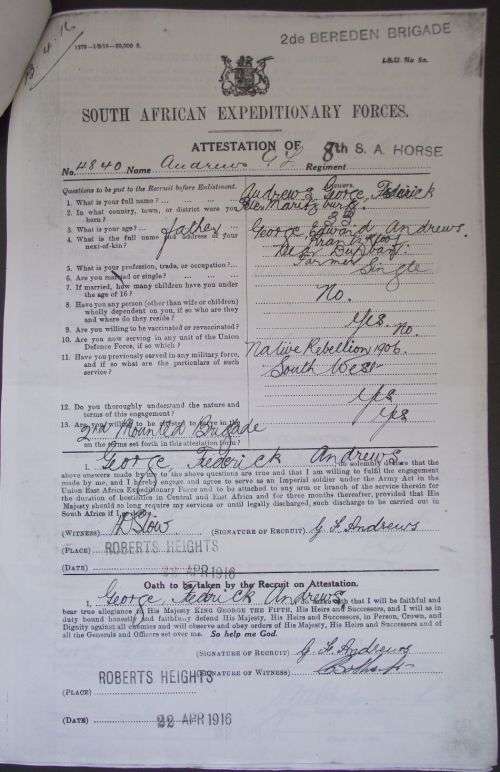 B. 4. 16
2de BEREDEN BRIGADE
1272—1/3/16—20,000 S.
I.S.U. No 5a.
SOUTH AFRICAN EXPEDITIONARY FORCES.
ATTESTATION OF
No. 4840 Name Andrews G F Regiment 8th S. A. HORSE
Questions to be put to the Recruit before Enlistment. Answers
1. What is your full name? Andrews George Frederick
2. In what country, town, or district were you born? Maritzburg
3. What is your age?
4. What is the full name and address of your next-of-kin? father George Edward Andrews.
Durban
5. What is your profession, trade, or occupation? Farmer
6. Are you married or single? Single
7. If married, how many children have you under the age of 16?
8. Have you any person (other than wife or children) wholly dependent on you, if so who are they and where do they reside? No.
9. Are you willing to be vaccinated or revaccinated? Yes.
10. Are you now serving in any unit of the Union Defence Force, if so which? No.
11. Have you previously served in any military force, and if so what are the particulars of such service? Native Rebellion 1906.
South West
12. Do you thoroughly understand the nature and terms of this engagement? Yes
13. Are you willing to be attested to serve in the Yes
2nd Mounted Brigade
on the terms set forth in this attestation form?
I, George Federick Andrews do solemnly declare that the
above answers made by me to the above questions are true and that I am willing to fulfil the engagement
made by me, and I hereby engage and agree to serve as an Imperial soldier under the Army Act in the
Union East Africa Expeditionary Force and to be attached to any arm or branch of the service therein for
the duration of hostilities in Central and East Africa and for three months thereafter, provided that His
Majesty should so long require my services or until legally discharged, such discharge to be carried out in
South Africa if I
(WITNESS) Slow (SIGNATURE OF RECRUIT) G F Andrews
(PLACE) ROBERTS HEIGHTS
(DATE) 22 APR 1916
Oath to be taken by the Recruit on Attestation.
I, George Federick Andrews, that I will be faithful and
bear true allegiance to His Majesty KING GEORGE THE FIFTH, His Heirs and Successors, and I will as in
duty bound honestly and faithfully defend His Majesty, His Heirs and Successors, in Person, Crown, and
Dignity against all enemies and will observe and obey orders of His Majesty, His Heirs and Successors and of
all the Generals and Officers set over me. So help me God.
(SIGNATURE OF RECRUIT) G F Andrews
(SIGNATURE OF WITNESS)
(PLACE) ROBERTS HEIGHTS
(DATE) 22 APR 1916